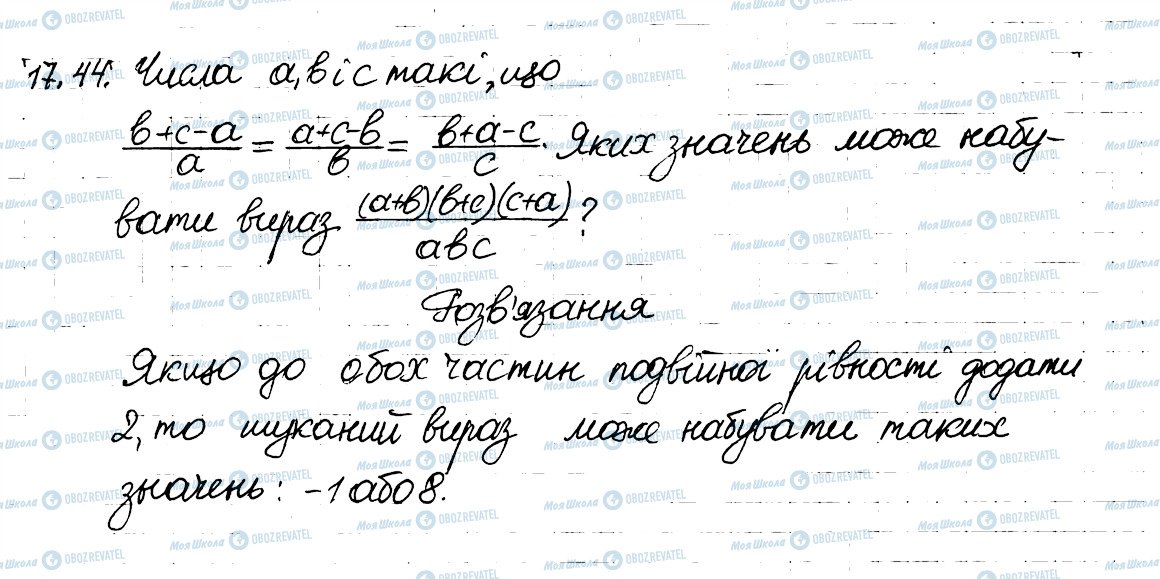 17.44. Числа a, b і c такі, що
b+c-a/a = a+c-b/b = b+a-c/c. Яких значень може набу-
вати вираз (a+b)(b+c)(c+a)/abc?
Розв'язання
Якщо до обох частин подвійної рівності додати
2, то шуканий вираз може набувати таких
значень: -1 або 8.
Моя Школа OBOZREVATEL